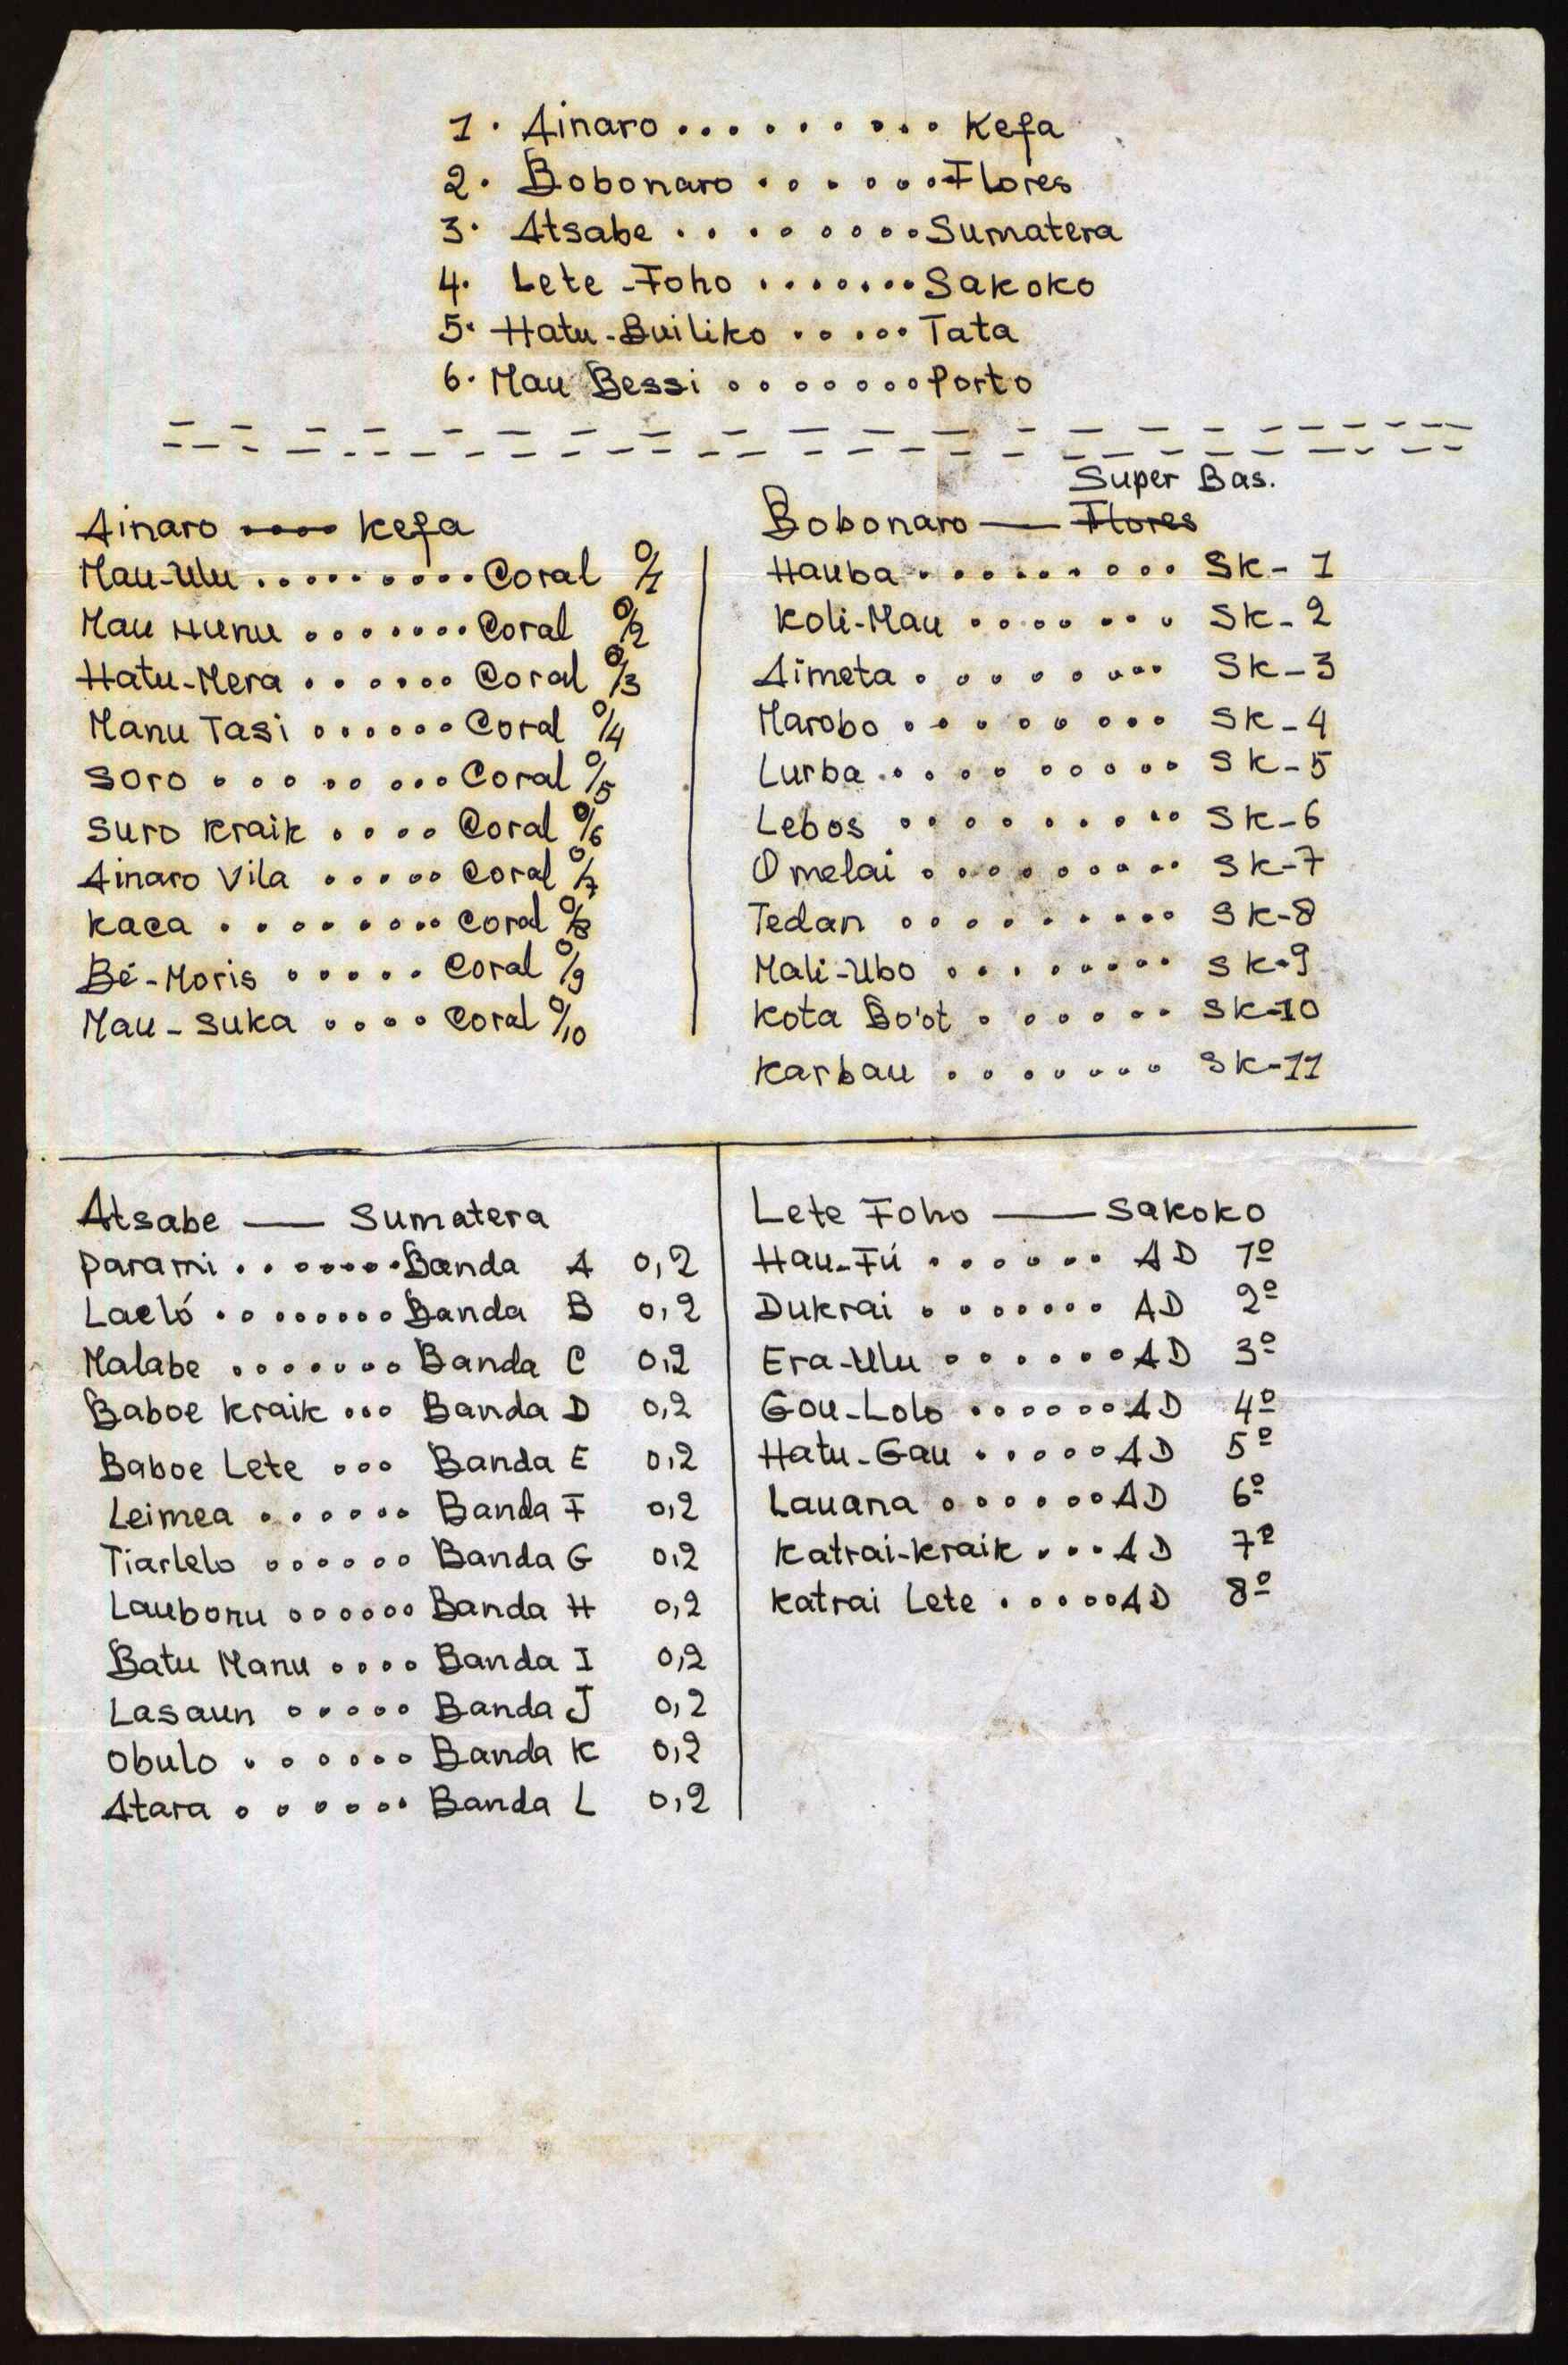 1. Ainaro .......... Kefa
2. Bobonaro ....... Flores
3. Atsabe ......... Sumatera
4. Lete-Foho ........ Sakoko
5. Hatu-Builiko ..... Tata
6. Mau Bessi ........ Porto
Ainaro ---- Kefa
Mau-Ulu .......... Coral 0/1
Mau Hunu ........ Coral 0/2
Hatu-Mera ...... Coral 0/3
Manu Tasi ...... Coral 0/4
Soro ......... Coral 0/5
Suro Kraik .... Coral 0/6
Ainaro Vila ..... Coral 0/7
Kaca ......... Coral 0/8
Bé-Moris ..... Coral 0/9
Mau-Suka .... Coral 0/10
Super Bas.
Bobonaro — Flores
Hauba .......... Sk-1
Koli-Mau ....... Sk-2
Aimeta ........ Sk-3
Marobo ......... Sk-4
Lurba .......... Sk-5
Lebos .......... Sk-6
Omelai ......... Sk-7
Tedan .......... Sk-8
Mali-Ubo ......... Sk-9
Kota Bo'ot ....... Sk-10
Karbau ....... Sk-11
Atsabe — Sumatera
Parami ........ Banda A 0,2
Lacló ......... Banda B 0,2
Malabe ....... Banda C 0,2
Baboe Kraik ... Banda D 0,2
Baboe Lete ... Banda E 0,2
Leimea ...... Banda F 0,2
Tiarlelo ...... Banda G 0,2
Laubonu ...... Banda H 0,2
Batu Manu .... Banda I 0,2
Lasaun ..... Banda J 0,2
Obulo ...... Banda K 0,2
Atara ...... Banda L 0,2
Lete Foho — Sakoko
Hau-Fú ...... AD 1º
Dukrai ....... AD 2º
Era-Ulu ....... AD 3º
Gou-Lolo ....... AD 4º
Hatu-Gau ..... AD 5º
Lauana ...... AD 6º
Katrai-Kraik ... AD 7º
Katrai Lete ..... AD 8º